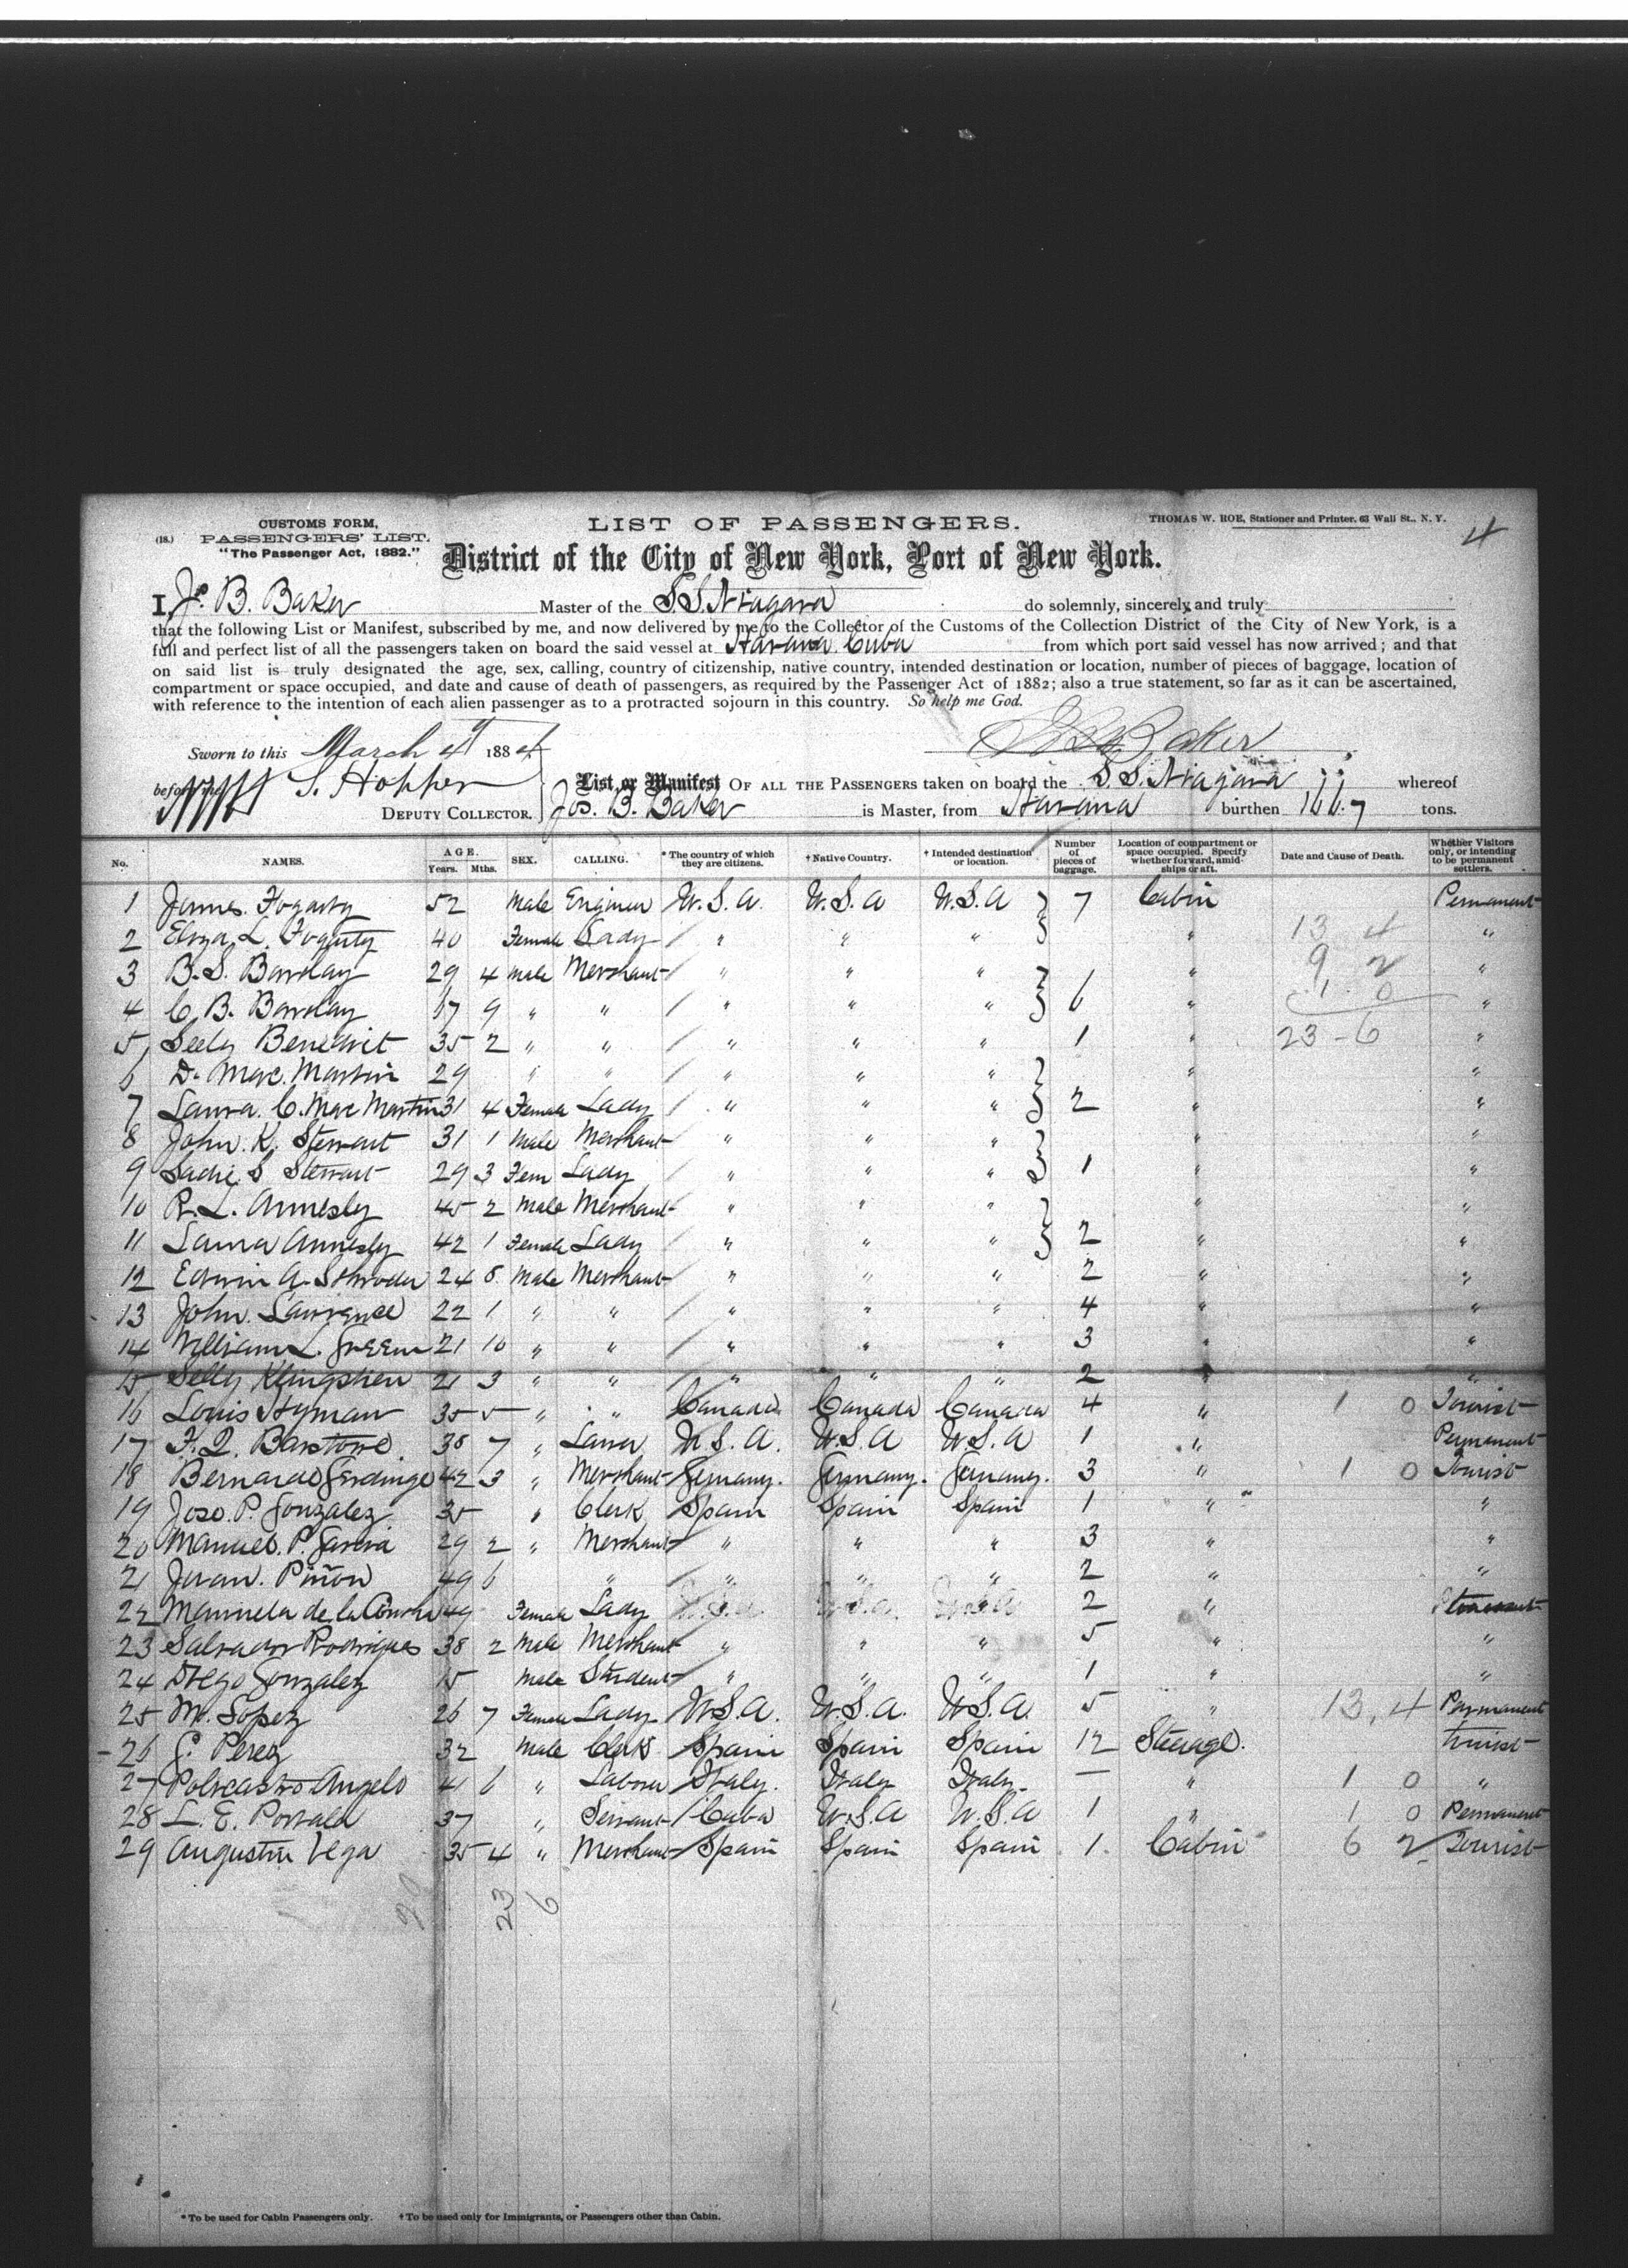 CUSTOMS FORM,
(18.) PASSENGERS' LIST.
"The Passenger Act, 1882."
LIST OF PASSENGERS.
THOMAS W. ROE, Stationer and Printer. 63 Wall St., N. Y.
4
District of the City of New York, Port of New York.
I, Js. B. Baker Master of the S.S. Niagara do solemnly, sincerely and truly
that the following List or Manifest, subscribed by me, and now delivered by me to the Collector of the Customs of the Collection District of the City of New York, is a
full and perfect list of all the passengers taken on board the said vessel at Havana Cuba from which port said vessel has now arrived; and that
on said list is truly designated the age, sex, calling, country of citizenship, native country, intended destination or location, number of pieces of baggage, location of
compartment or space occupied, and date and cause of death of passengers, as required by the Passenger Act of 1882; also a true statement, so far as it can be ascertained,
with reference to the intention of each alien passenger as to a protracted sojourn in this country. So help me God.
Baker
Sworn to this March 4 1884
before me S. Hopper
DEPUTY COLLECTOR.
List or Manifest OF ALL THE PASSENGERS taken on board the S.S. Niagara whereof
Jos. B. Baker is Master, from Havana burthen 1667 tons.
No. NAMES. AGE. Years. Mths. SEX. CALLING. * The country of which they are citizens. † Native Country. † Intended destination or location. Number of pieces of baggage. Location of compartment or space occupied. Specify whether forward, amidships or aft. Date and Cause of Death. Whether Visitors only, or intending to be permanent settlers.
1 James Fogarty 52 Male Engineer U.S.A. U.S.A U.S.A 7 Cabin Permanent
2 Eliza L. Fogarty 40 Female Lady " " " " 13 4 "
3 B. S. Barclay 29 4 male Merchant " " " " 9 2 "
4 C. B. Barclay 67 9 " " " " " 6 " 1 0 "
5 Seely Benedict 35 2 " " " " " 1 " 23-6 "
6 D. Mac. Martin 29 " " " " " " "
7 Laura. C. Mac Martin 31 4 Female Lady " " " 2 " "
8 John. K. Stewart 31 1 Male Merchant " " " " "
9 Sadie S Stewart 29 3 Fem Lady " " " 1 " "
10 R. L. Annesly 45 2 Male Merchant " " " " "
11 Laura Annesly 42 1 Female Lady " " " 2 " "
12 Edwin A. Schroder 24 8 Male Merchant " " " 2 " "
13 John Lawrence 22 1 " " " " " 4 " "
14 William L. Green 21 10 " " " " " 3 " "
15 Selly 21 3 " " " " " 2 " "
16 Louis Hyman 35 5 " " Canada Canada Canada 4 " 1 0 Tourist
17 F. Q. Barstow 38 7 " U.S.A. U.S.A U.S.A 1 " Permanent
18 Bernardo 42 3 " Merchant Germany. Germany. Germany. 3 " 1 0 Tourist
19 Jose. P. Gonzalez 35 " Clerk Spain Spain Spain 1 " "
20 Manuel. P. Garcia 29 2 " Merchant " " " 3 " "
21 Juan. Piñon 49 6 " " " " 2 " "
22 Manuela de la Concha 49 Female Lady U.S.A U.S.A. U.S.A 2 "
23 Salvador Rodrigues 38 2 Male Merchant " " " 5 " "
24 Diego Gonzalez 15 Male Student " " " 1 " "
25 M. Lopez 26 7 Female Lady U.S.A. U.S.A. U.S.A. 5 " 13, 4 Permanent
26 J. Perez 32 Male Clerk Spain Spain Spain 12 Steerage. Tourist
27 Policastro Angelo 41 6 " Laborer Italy. Italy Italy — " 1 0 "
28 L. E. 37 " Servant Cuba U.S.A U.S.A 1 " 1 0 Permanent
29 Augustin Vega 35 4 " Merchant Spain Spain Spain 1. Cabin 6 2 Tourist
29 23 6
* To be used for Cabin Passengers only. † To be used only for Immigrants, or Passengers other than Cabin.